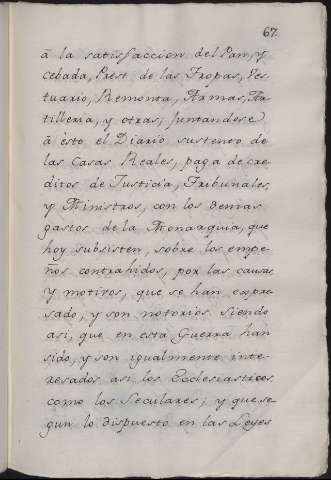 67.
â la satisfaccion del Pan, y
cebada, Prest de las Tropas, Ves-
tuario, Remonta, Armas, Ar-
tilleria, y otras; juntandose
â ésto el Diario sustento de
las Casas Reales, paga de cre-
ditos de Justicia, Tribunales,
y Ministros, con los demas
gastos de la Monarquia, que
hoy subsisten, sobre los empe-
ños contrahidos, por las causas
y motivos, que se han expre-
sado, y son notorios. Siendo
asi, que en esta Guerra han
sido, y son igualmente inte-
resados asi los Ecclesiasticos
como los Seculares; y que se-
gun lo dispuesto en las Leyes